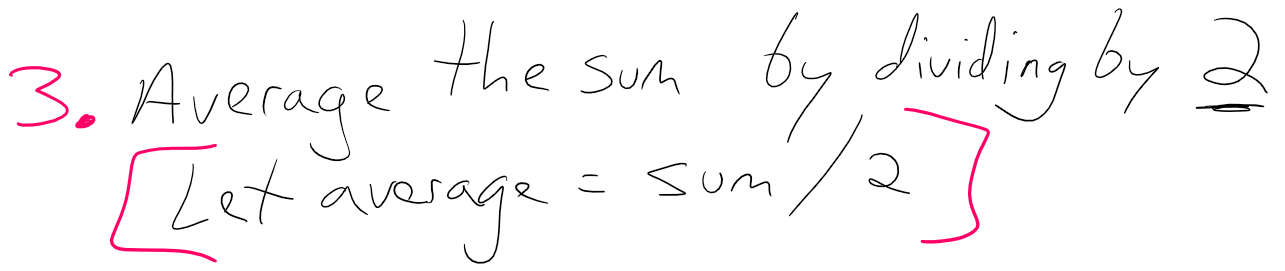 3. Average the sum by dividing by 2
[Let average = sum / 2]